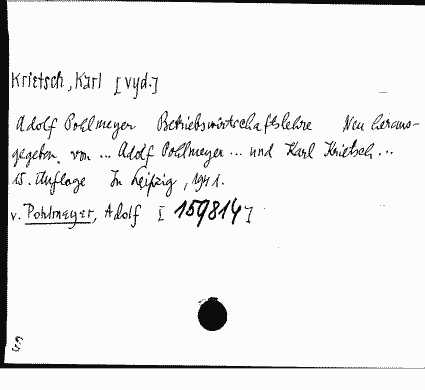 Krietsch, Karl [vyd.]
Adolf Pohlmeyer Betriebswirtschaftslehre Neu heraus-
gegeben von ... Adolf Pohlmeyer ... und Karl Krietsch ...
15. Auflage In Leipzig, 1941.
v. Pohlmeyer, Adolf [159814]